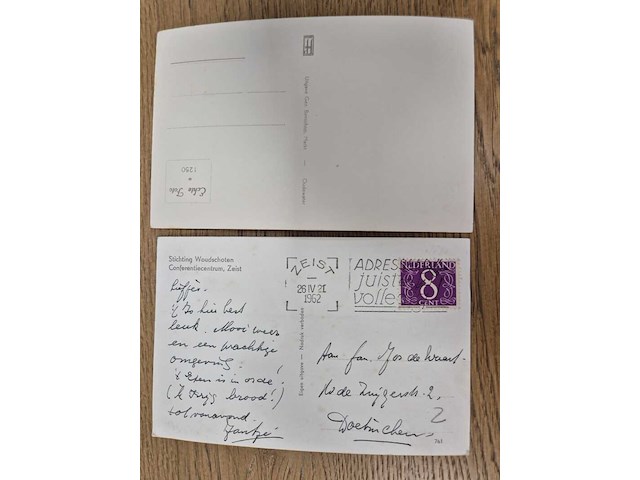 Echte Foto
1250
Stichting Woudschoten
Conferentiecentrum, Zeist
Liefje.
't Is hier best
leuk. Mooi weer
en een prachtige
omgeving!
't Eten is in orde!
(2 krijg brood!)
tot vanavond.
Jantje
Eigen uitgave — Nadruk verboden
ZEIST
26 IV 21
1962
ADRES
juist
volle
NEDERLAND
8
CENT
Aan fam. Jos de Waart
de 2.
2
Doetinchem
761